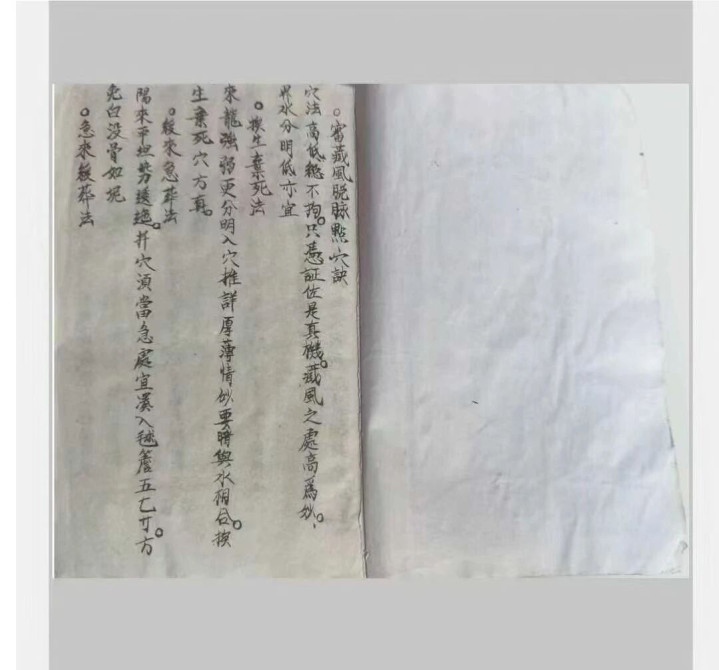 。審藏風脱脉點穴訣
穴法高低總不拘。只憑証佐是真機。藏風之處高爲妙、
界水分明低亦宜
。挨生棄死法
來龍強弱更分明入穴推詳厚薄情砂要 與水相合。挨
生棄死穴方真。
。緩來急葬法
陽來平坦勢逶迤。扦穴須當急處宜湊入毬簷五七寸。方
免白没骨如泥
。急來緩葬法